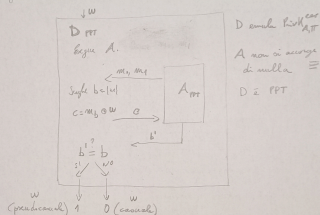 w
D PPT
esegue A.
m₀, m₁
A PPT
Sceglie b ∈ {0,1}
c = m_b ⊕ w
c
b'
b' ≟ b
sì NO
w w
(pseudocasuale) 1 0 (casuale)
D emula PrivK^eav_A,Π
A non si accorge
di nulla ≡
D è PPT